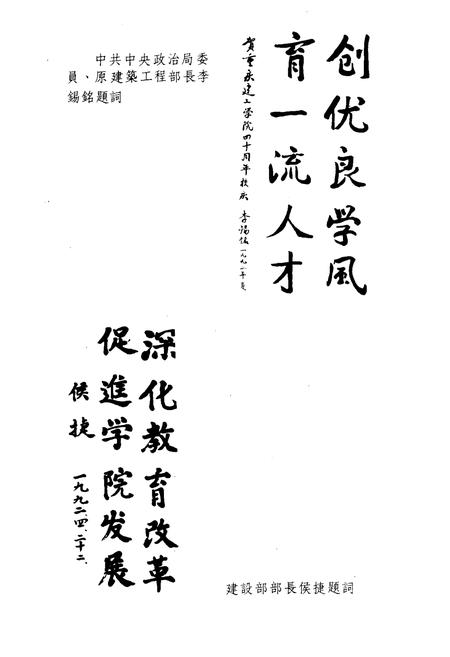 中共中央政治局委
員、原建築工程部長李
錫銘題詞
创优良学風
育一流人才
賀重庆建工学院四十周年校庆 李锡铭 一九九二年
深化教育改革
促進学院发展
侯捷
一九九二.四.二十二.
建設部部長侯捷題詞